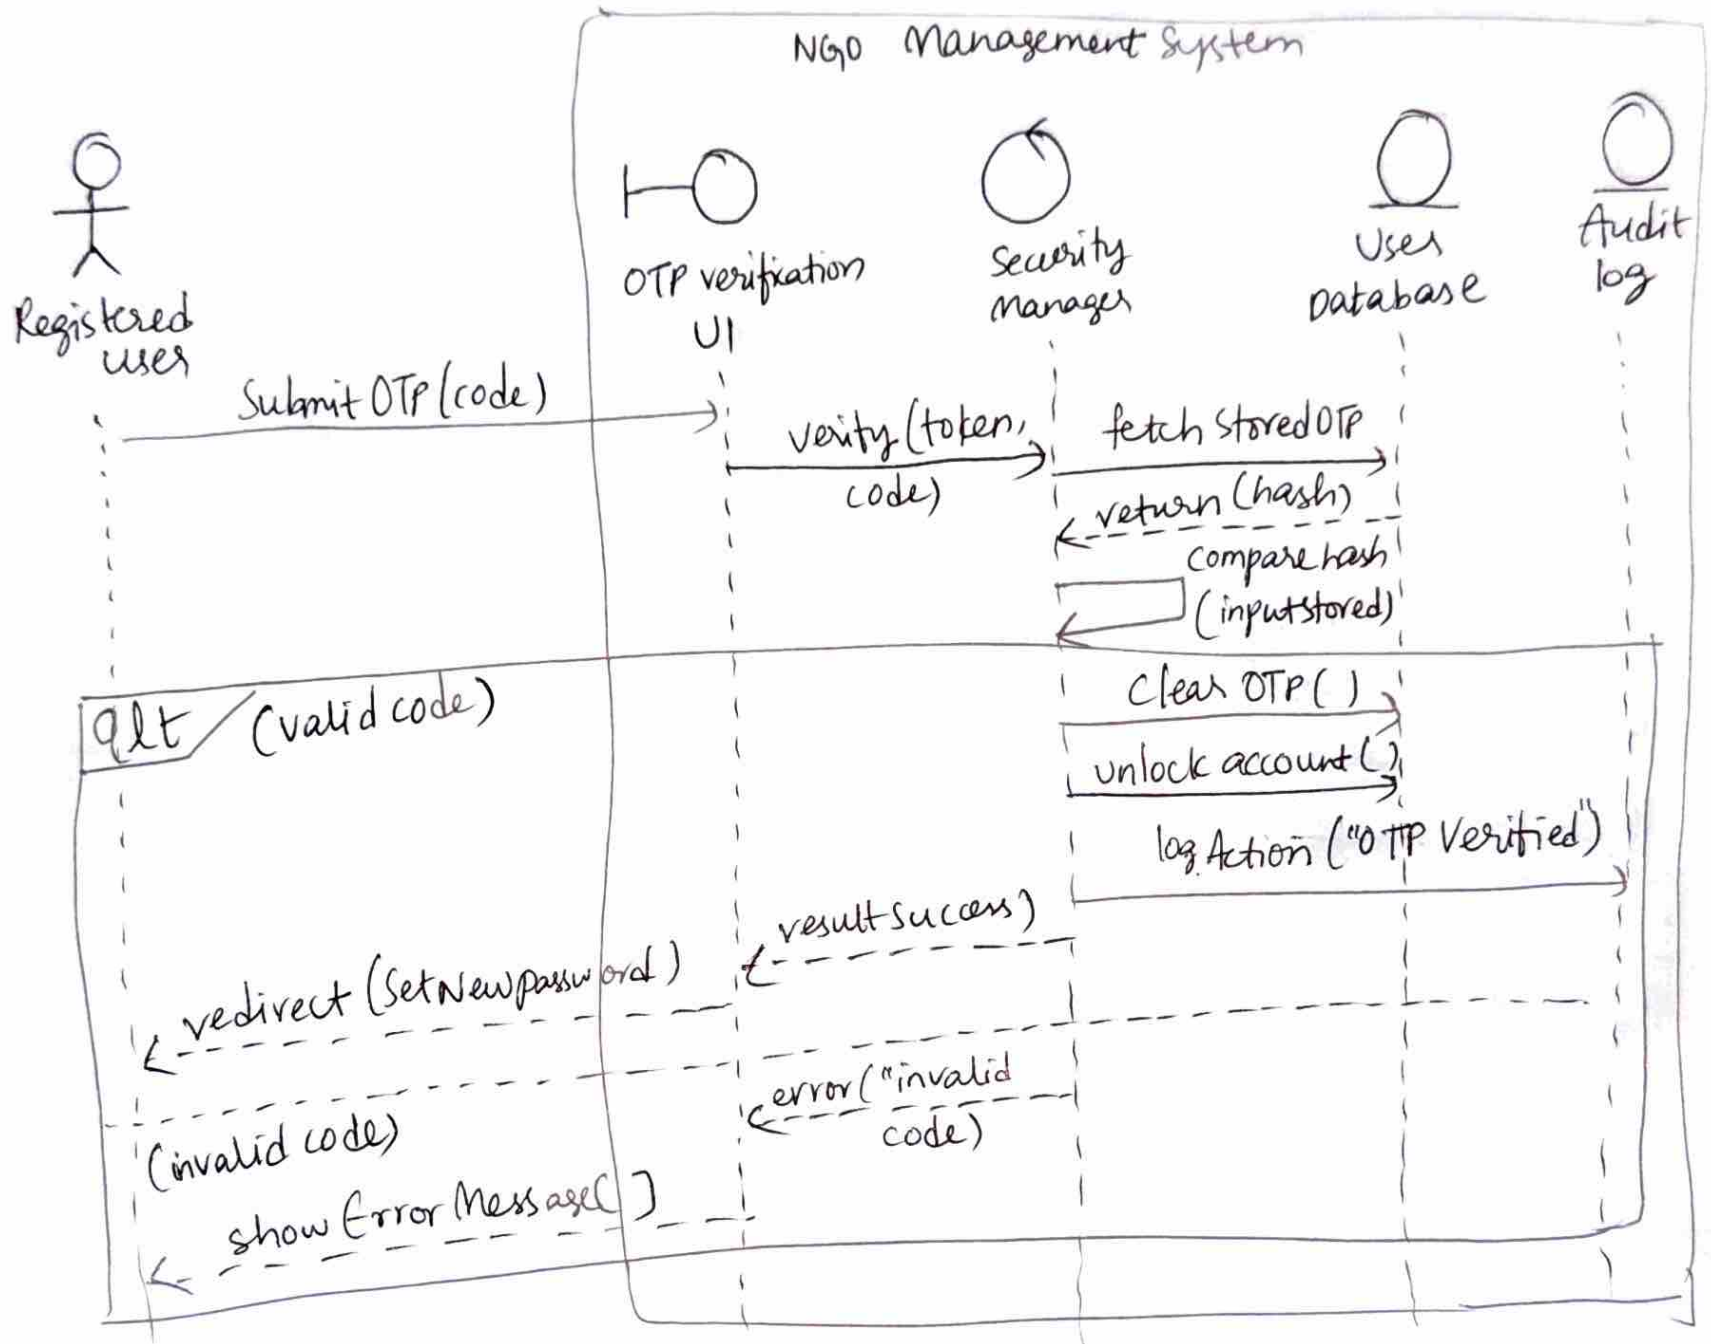 NGO Management System
Registered
user
OTP verification
UI
Security
Manager
User
Database
Audit
log
Submit OTP (code)
verify (token,
code)
fetch storedOTP
return (hash)
compare hash
(inputstored)
alt (valid code)
Clear OTP ( )
unlock account ( )
log Action ("OTP Verified")
result success)
redirect (SetNewpassword)
error ("invalid
code)
(invalid code)
show Error Message( )